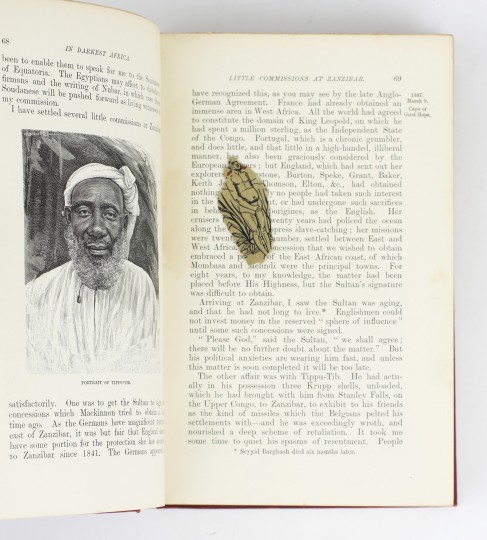 68
IN DARKEST AFRICA.
been to enable them to speak for me to the
of Equatoria. The Egyptians may affect to
firmans and the writing of Nubar, in which case
Soudanese will be pushed forward as living
my commission.
I have settled several little commissions at Zanzibar
PORTRAIT OF TIPPU-TIB.
satisfactorily. One was to get the Sultan to
concessions which Mackinnon tried to obtain
time ago. As the Germans have magnificent
east of Zanzibar, it was but fair that England
have some portion for the protection she has
to Zanzibar since 1841. The Germans
LITTLE COMMISSIONS AT ZANZIBAR.
69
1887.
March 9.
Cape of
Good Hope.
have recognised this, as you may see by the late Anglo-
German Agreement. France had already obtained an
immense area in West Africa. All the world had agreed
to constitute the domain of King Leopold, on which he
had spent a million sterling, as the Independent State
of the Congo. Portugal, which is a chronic grumbler,
and does little, and that little in a high-handed, illiberal
manner, has been graciously considered by the
European ; but England, which had sent out her
explorers, Burton, Speke, Grant, Baker,
Keith Thomson, Elton, &c., had obtained
nothing no people had taken such interest
in the or had undergone such sacrifices
in aborigines, as the English. Her
cruisers twenty years had policed the ocean
along the press slave-catching; her missions
were twenty number, settled between East and
West concession that we wished to obtain
embraced a of the East African coast, of which
Mombasa and Melindi were the principal towns. For
eight years, to my knowledge, the matter had been
placed before His Highness, but the Sultan's signature
was difficult to obtain.
Arriving at Zanzibar, I saw the Sultan was aging,
and that he had not long to live.* Englishmen could
not invest money in the reserved "sphere of influence"
until some such concessions were signed.
"Please God," said the Sultan, "we shall agree;
there will be no further doubt about the matter." But
his political anxieties are wearing him fast, and unless
this matter is soon completed it will be too late.
The other affair was with Tippu-Tib. He had actu-
ally in his possession three Krupp shells, unloaded,
which he had brought with him from Stanley Falls, on
the Upper Congo, to Zanzibar, to exhibit to his friends
as the kind of missiles which the Belgians pelted his
settlements with—and he was exceedingly wroth, and
nourished a deep scheme of retaliation. It took me
some time to quiet his spasms of resentment. People
* Seyyid Barghash died six months later.